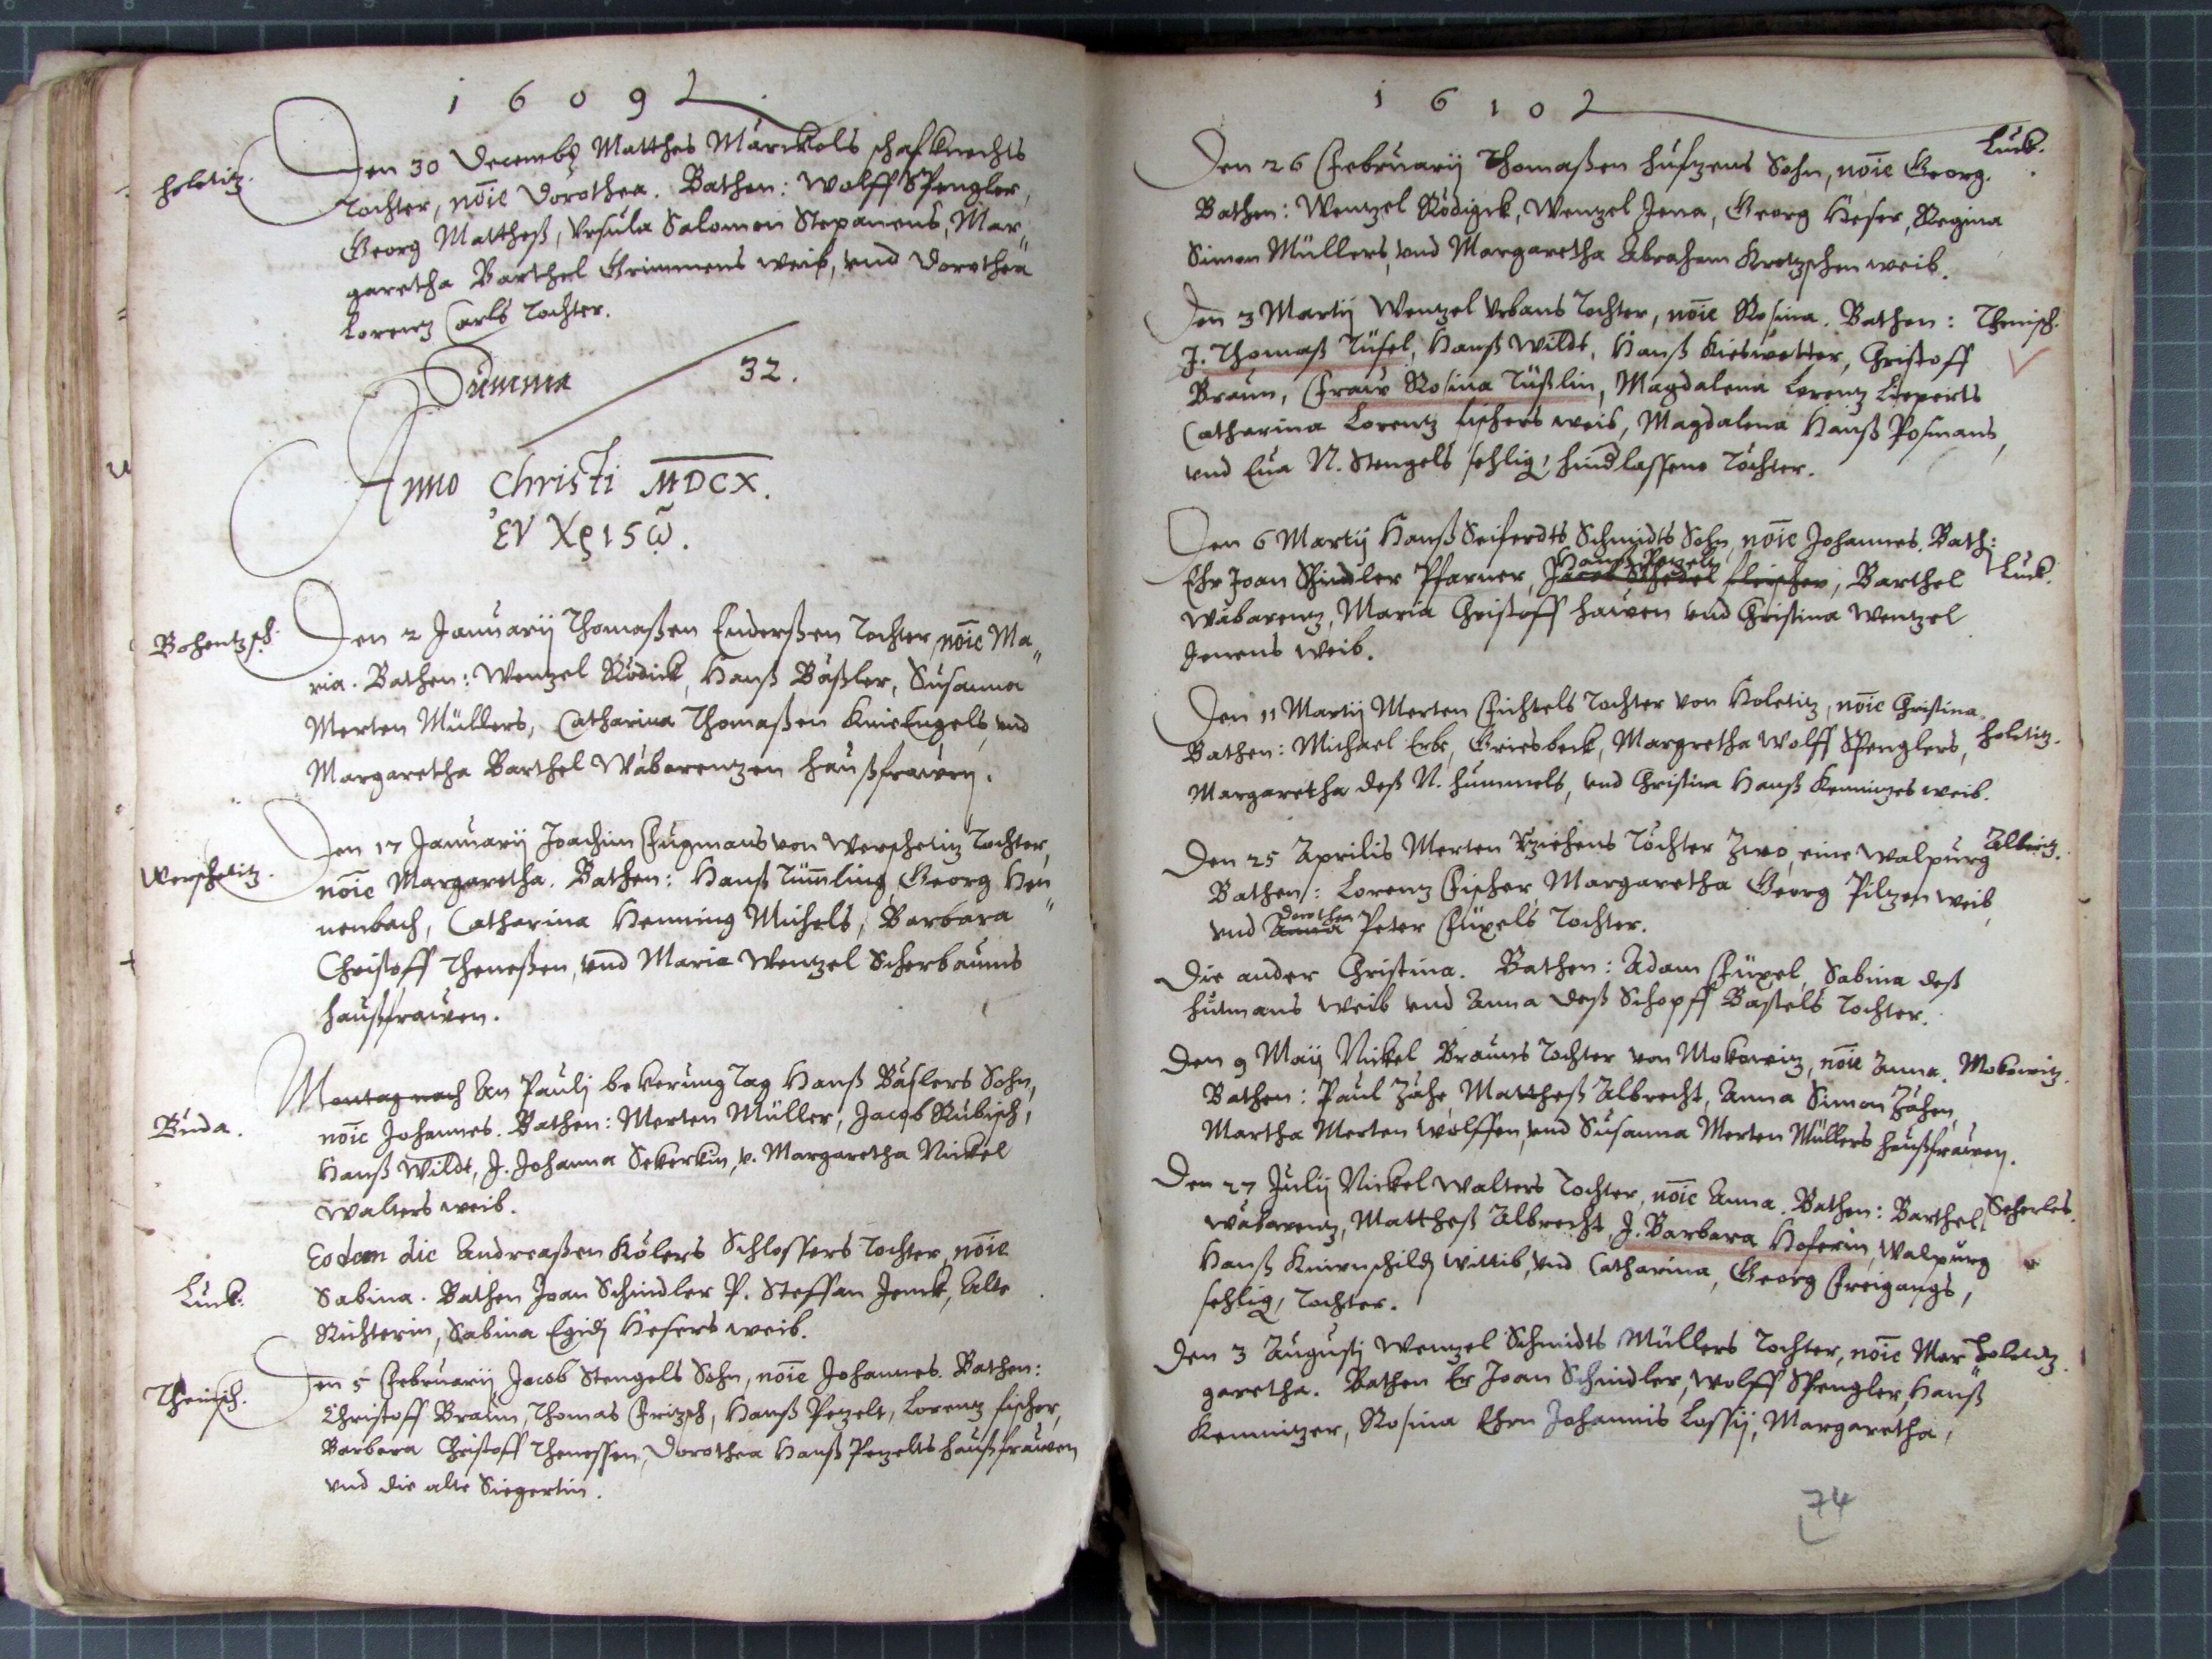 1609
holetitz.
Den 30 Decemb. Matthes Märckels schafknechts
Tochter, nōīe Dorothea. Bathen: Wolff Spengler,
Georg Mattheß, Vrsula Salomon Stepanens, Mar„
garetha Barthel Grimmens weib, vnd Dorothea
Lorentz Carls Tochter.
Summa 32.
Anno Christi MDCX.
ἐν Χριςῷ.
Bohentzsch.
Den 2 Januarij Thomaßen Enderßen Tochter, nōīe Ma„
ria. Bathen: Wentzel Rödick, Hanß Bäßler, Susanna
Merten Müllers, Catharina Thomaßen KnieEngels, vnd
Margaretha Barthel Wabarentzen haußfrawen.
Werschetitz.
Den 17 Januarij Joachim Fugmans von Werschetitz Tochter,
nōīe Margaretha. Bathen: Hanß Tümling, Georg Hen„
nenbach, Catharina Henning Michels, Barbara
Christoff Theneßen, vnd Maria Wentzel Scherbaums
haußfrawen.
Buda.
Montag nach An Paulj bekerung Tag Hanß Bäslers Sohn,
nōīe Johannes. Bathen: Merten Müller, Jacob Rubisch,
Hanß Wildt, J. Johanna Sekerkin, v. Margaretha Nickel
Walters weib.
Luck.
Eodem die Andreaßen Kölers Schlossers Tochter, nōīe
Sabina. Bathen Joan Schindler P. Steffan Jenck, Alte
Richterin, Sabina Egidj Hesers weib.
Theusch.
Den 5 Februarij Jacob Stengels Sohn, nōīe Johannes. Bathen:
Christoff Braun, Thomas Fritzsch, Hanß Petzelt, Lorentz fischer,
Barbara Christoff Thenessen, Dorothea Hanß Petzelts haußfrawen
vnd die alte Siegertin.
1610
Luck.
Den 26 Februarij Thomaßen hufzens Sohn, nōīe Georg.
Bathen: Wentzel Rödigck, Wentzel Jena, Georg Heser, Regina
Simon Müllers, vnd Margaretha Abraham Kretzschen weib.
Den 3 Martij Wentzel Vrbans Tochter, nōīe Rosina. Bathen: Theusch.
J. Thomaß Tüsel, Hanß Wildt, Hanß Kieswetter, Christoff
Braun, Fraw Rosina Tüßlin, Magdalena Lorentz Lieperts
Catharina Lorentz fischers weib, Magdalena Hanß Posmans,
vnd Eua N. Stengels sehlig: hindlassene Tochter.
Den 6 Martij Hanß Seiferdts Schmidts Sohn, nōīe Johannes. Bath:
Hanß Petzelt
Ehr Joan Schindler Pfarner, Jacob Schedel fleischer, Barthel Luck.
Wabarentz, Maria Christoff hawen vnd Christina Wentzel
Jenens weib.
Den 11 Martij Merten Fichtels Tochter von Holetitz, nōīe Christina.
Bathen: Michael Erbe, Griesbeck, Margretha Wolff Spenglers, holetitz.
Margaretha deß N. hummels, vnd Christina Hanß Kemnitzes weib.
Den 25 Aprilis Merten Ziehens Töchter Zwo, eine Walpurg Alberitz.
Bathen: Lorentz Fischer, Margaretha Georg Piltzen weib,
Dorothea
vnd Anna Peter Füxels Tochter.
Die ander Christina. Bathen: Adam Füxel, Sabina deß
hutmans weib vnd Anna deß Schopff Bastels Tochter.
Den 9 Maij Nickel Brauns Tochter von Mokowitz, nōīe Anna. Mokowitz.
Bathen: Paul Zähe, Mattheß Albrecht, Anna Simon Zähen,
Martha Merten Wolffen, vnd Susanna Merten Müllers haußfrawen.
Den 27 Julij Nickel Walters Tochter, nōīe Anna. Bathen: Barthel Scherles.
Wabarentz, Mattheß Albrecht, J. Barbara Hoferin, Walpurg
Hanß Knienschildj wittib, vnd Catharina, Georg Freigangs,
sehlig, Tochter.
Den 3 Augustj Wentzel Schmidts Müllers Tochter, nōīe Mar„ holetitz.
garetha. Bathen Er Joan Schindler, Wolff Spengler, Hanß
Kemnitzer, Rosina Ehrn Johannis Lossij, Margaretha,
74